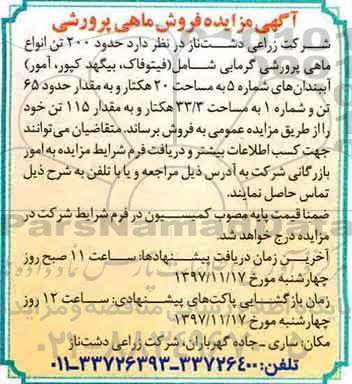 آگهی مزایده فروش ماهی پرورشی
شرکت زراعی دشت‌ناز در نظر دارد حدود ۲۰۰ تن انواع
ماهی پرورشی گرمابی شامل (فیتوفاک، بیگهد کپور، آمور)
آببندان‌های شماره ۵ به مساحت ۲۰ هکتار و به مقدار حدود ۶۵
تن و شماره ۱ به مساحت ۳۳/۳ هکتار و به مقدار ۱۱۵ تن خود
را از طریق مزایده عمومی به فروش برساند. متقاضیان می‌توانند
جهت کسب اطلاعات بیشتر و دریافت فرم شرایط مزایده به امور
بازرگانی شرکت به آدرس ذیل مراجعه و یا با تلفن به شرح ذیل
تماس حاصل نمایند.
ضمنا قیمت پایه مصوب کمیسیون در فرم شرایط شرکت در
مزایده درج خواهد شد.
آخرین زمان دریافت پیشنهادها: ساعت ۱۱ صبح روز
چهارشنبه مورخ ۱۳۹۷/۱۱/۱۷
زمان بازگشایی پاکت‌های پیشنهادی: ساعت ۱۲ روز
چهارشنبه مورخ ۱۳۹۷/۱۱/۱۷
مکان: ساری - جاده گهرباران، شرکت زراعی دشت‌ناز
تلفن: ۳۳۷۲۶۴۰۰-۳۳۷۲۶۳۹۳-۰۱۱